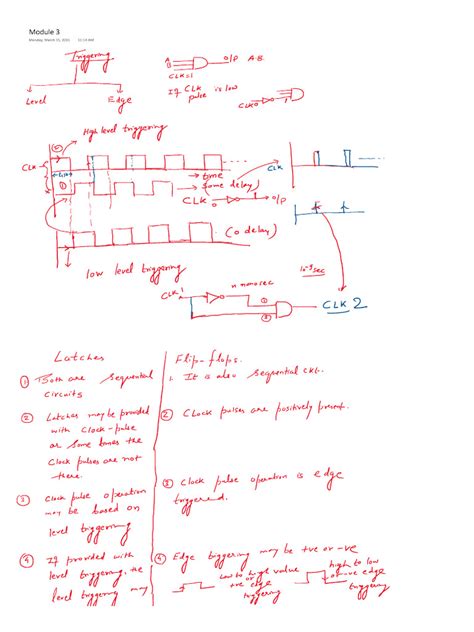 Module 3
Monday, March 15, 2021
Triggering
Level
Edge
O/P A.B
CLK=1
If CLK
pulse is low
CLK=0
High level triggering
CLK
time
(Some delay)
CLK
O/P
(0 delay)
low level triggering
CLK
10⁻⁹ sec
n nanosec
CLK 1
①
②
CLK 2
Latches
① Both are sequential
circuits
② Latches may be provided
with clock-pulse
or some times the
clock pulses are not
there.
③ Clock pulse operation
may be based on
level triggering
④ If provided with
level triggering, the
level triggering may
Flip-flops.
1. It is also sequential ckt.
② Clock pulses are positively present.
③ Clock pulse operation is edge
triggered.
④ Edge triggering may be +ve or -ve
Low to high value
+ve edge
triggering
high to low
or -ve edge
triggering